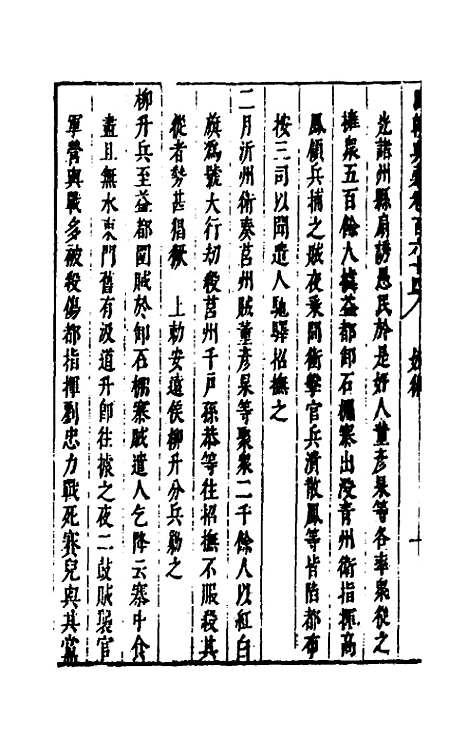 卷一百六十四 妖術 十
先諸州縣扇誘愚民於是奸人董彥杲等各率眾從之
擁眾五百餘人據益都卸石柵寨出没青州衛指揮高
鳳領兵捕之賊夜乘間衝擊官兵潰散鳳等皆陷都布
按三司以聞遣人馳驛招撫之
二月沂州衛奏莒州賊董彥杲等聚眾二千餘人以紅白
旗為號大行劫殺莒州千戶孫恭等往招撫不服殺其
從者勢甚猖獗 上勑安遠侯柳升分兵勦之
柳升兵至益都圍賊於卸石柵寨賊遣人乞降云寨中食
盡且無水東門舊有汲道升即往據之夜二鼓賊襲官
軍營與戰多被殺傷都指揮劉忠力戰死賽兒與其黨